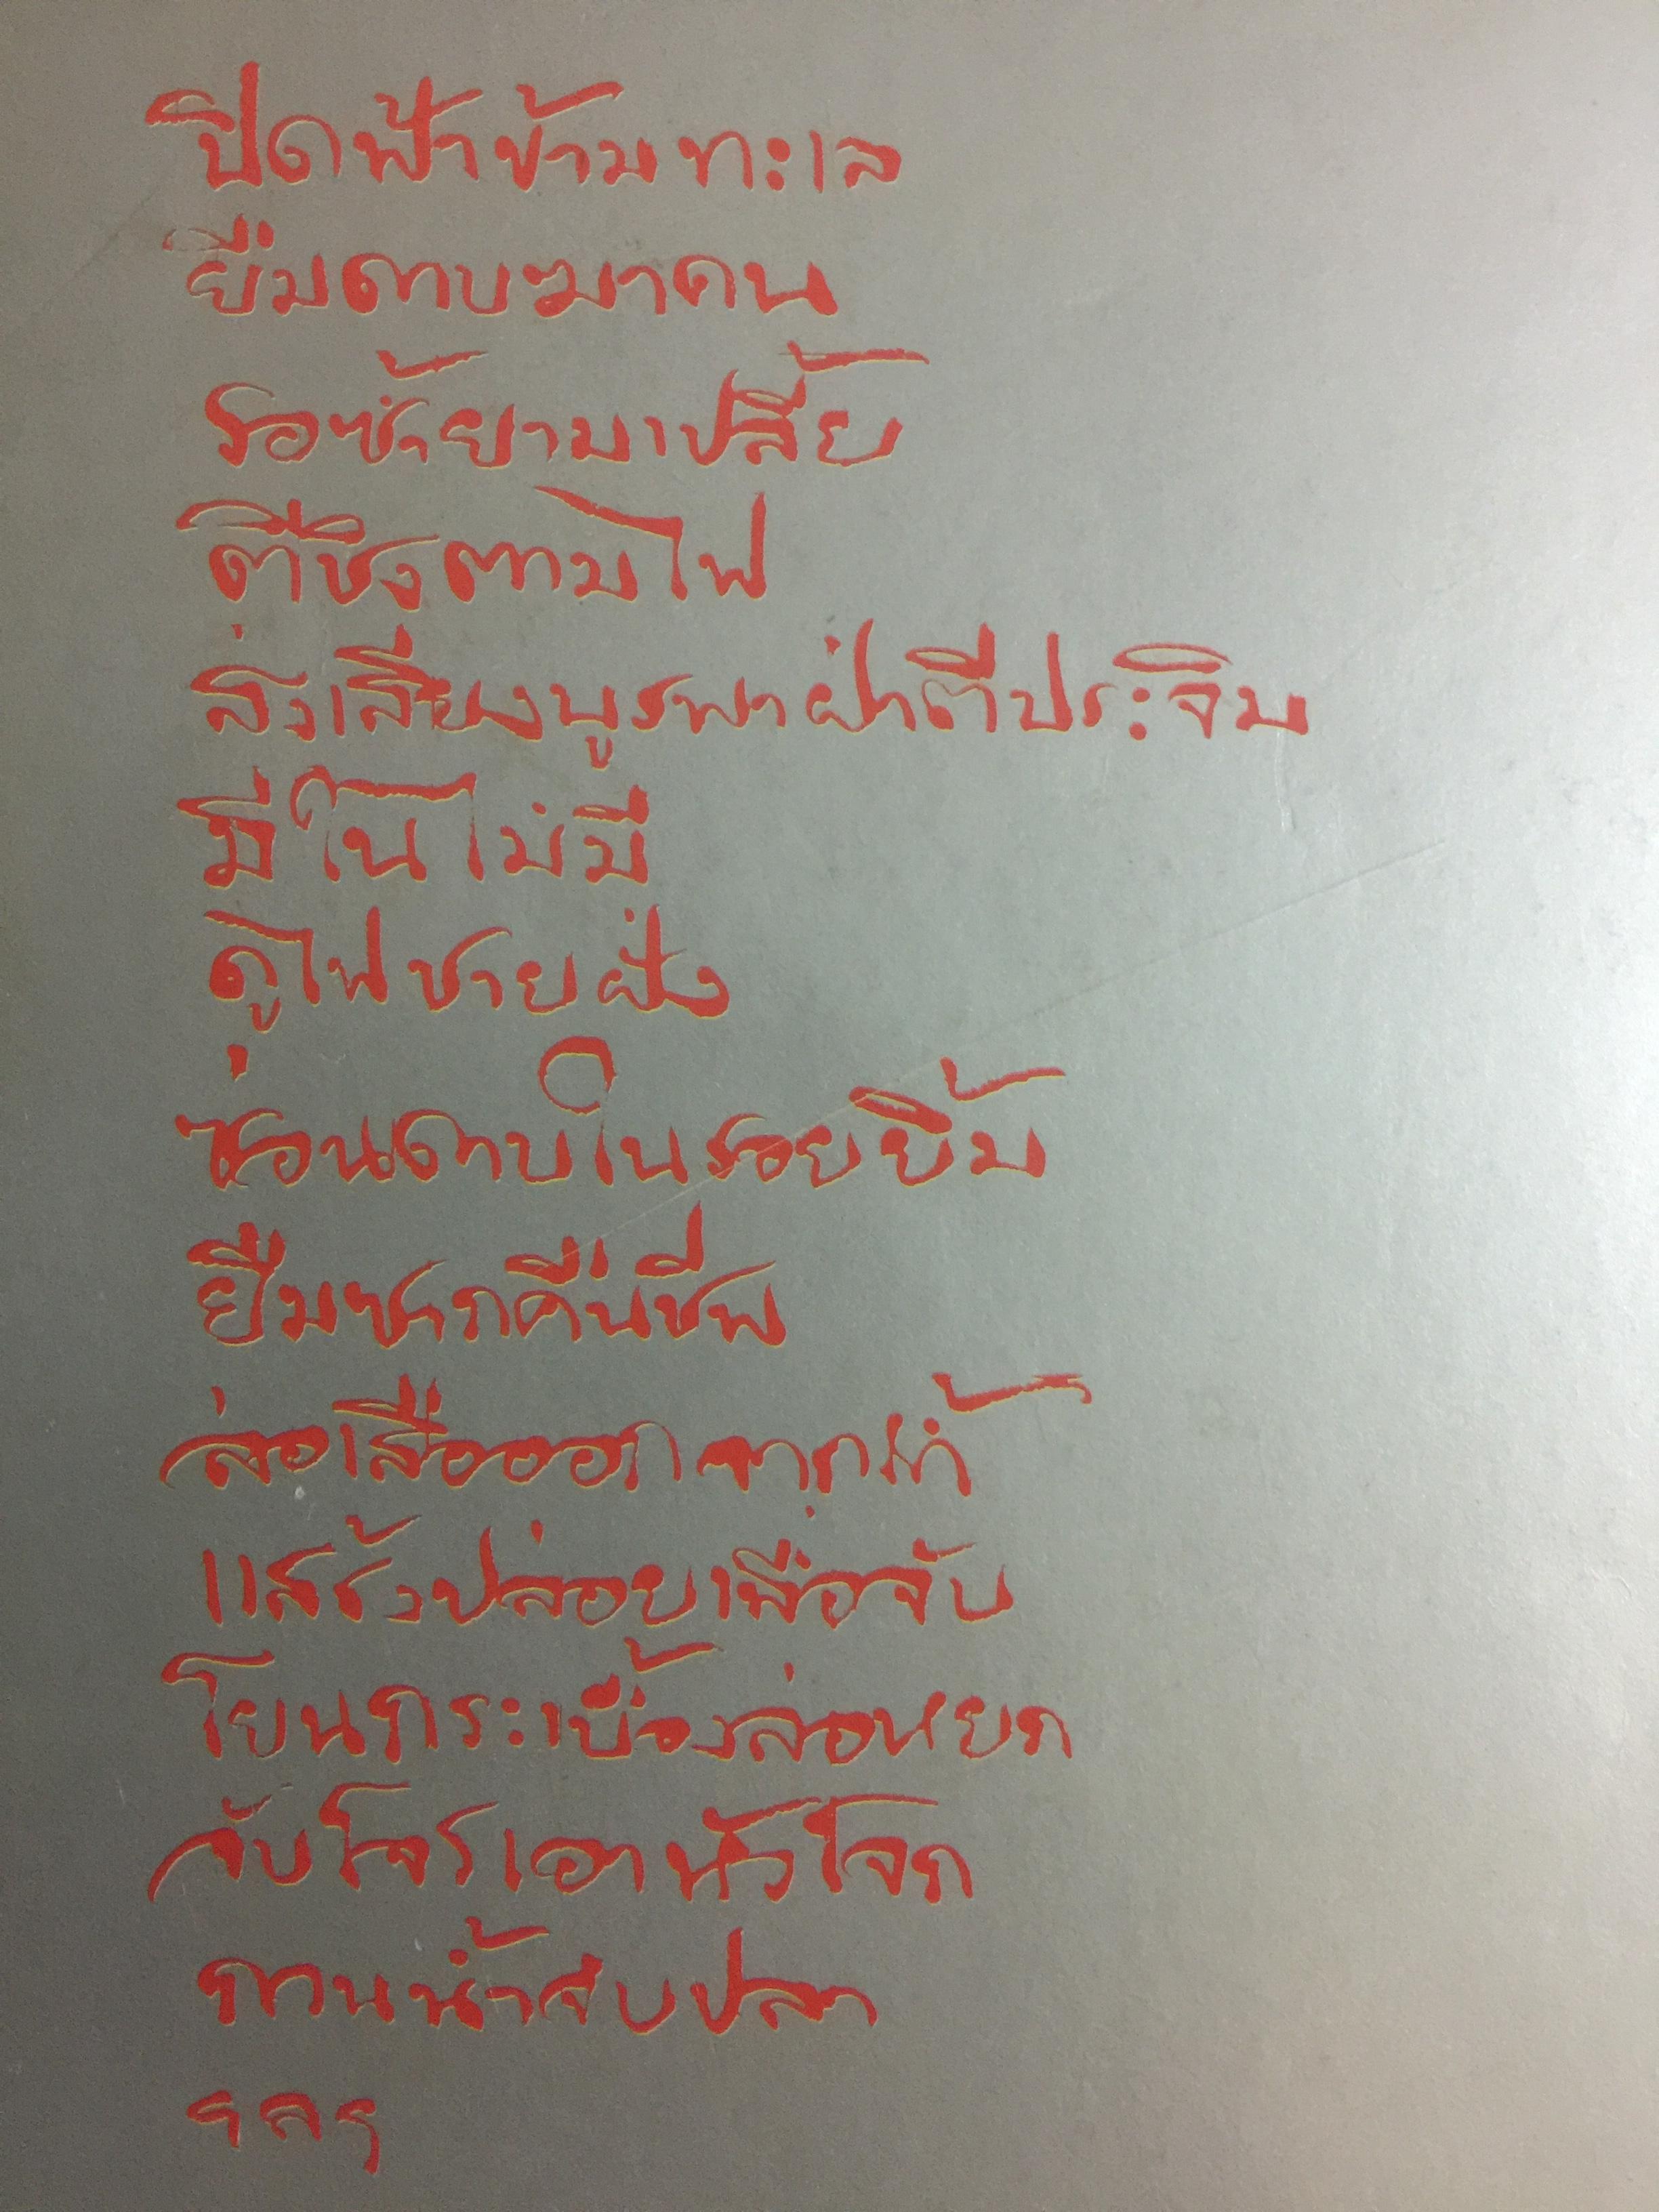 ปิดฟ้าข้ามทะเล
ยืมดาบฆ่าคน
รอซ้ำยามเปลี้ย
ตีชิงตามไฟ
ส่งเสียงบูรพาฝ่าตีประจิม
มีในไม่มี
ดูไฟชายฝั่ง
ซ่อนดาบในรอยยิ้ม
ยืมซากคืนชีพ
ล่อเสือออกจากถ้ำ
แสร้งปล่อยเพื่อจับ
โยนกระเบื้องล่อหยก
จับโจรเอาหัวโจก
กวนน้ำจับปลา
ฯลฯ